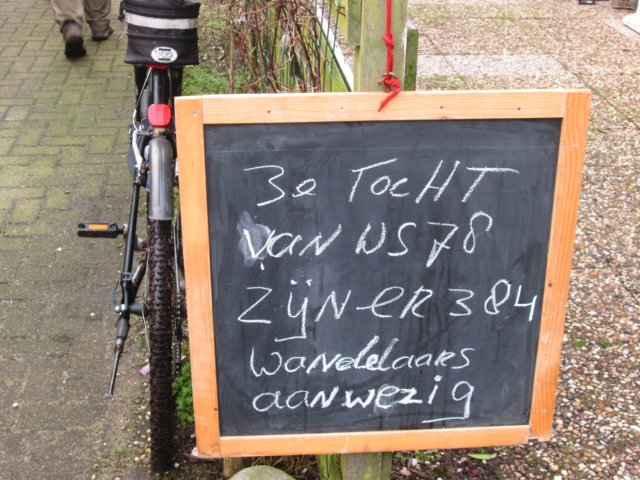 3e TocHT
van WS78
Zijn er 384
wandelaars
aanwezig